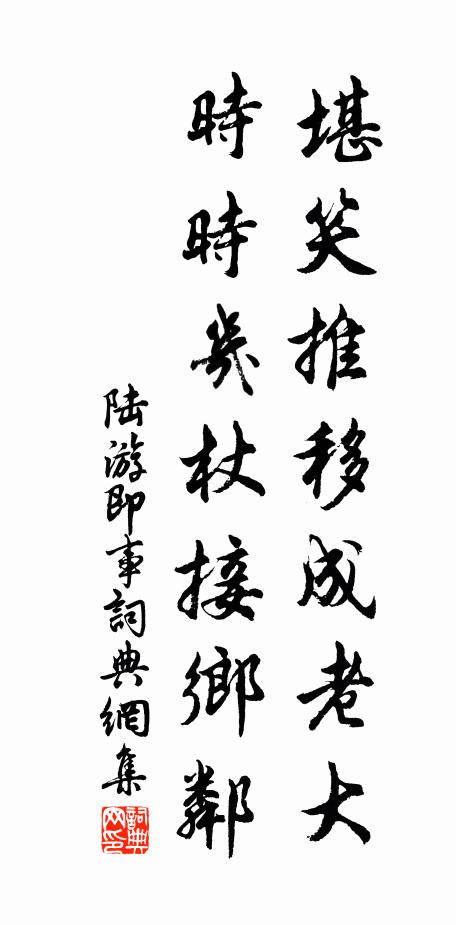 堪笑推移成老大
時時几杖接鄉鄰
陸游即事詞典網集
詞典网印